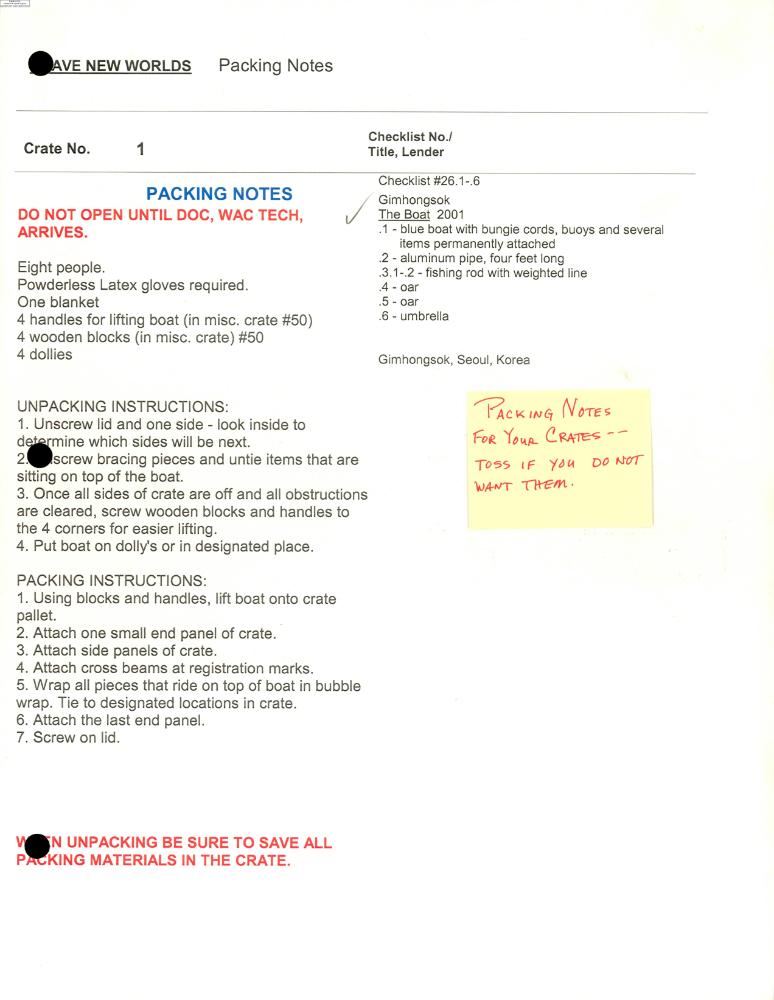 AVE NEW WORLDS Packing Notes
Crate No. 1
Checklist No./
Title, Lender
PACKING NOTES
DO NOT OPEN UNTIL DOC, WAC TECH,
ARRIVES.
Eight people.
Powderless Latex gloves required.
One blanket
4 handles for lifting boat (in misc. crate #50)
4 wooden blocks (in misc. crate) #50
4 dollies
UNPACKING INSTRUCTIONS:
1. Unscrew lid and one side - look inside to
determine which sides will be next.
2. screw bracing pieces and untie items that are
sitting on top of the boat.
3. Once all sides of crate are off and all obstructions
are cleared, screw wooden blocks and handles to
the 4 corners for easier lifting.
4. Put boat on dolly's or in designated place.
PACKING INSTRUCTIONS:
1. Using blocks and handles, lift boat onto crate
pallet.
2. Attach one small end panel of crate.
3. Attach side panels of crate.
4. Attach cross beams at registration marks.
5. Wrap all pieces that ride on top of boat in bubble
wrap. Tie to designated locations in crate.
6. Attach the last end panel.
7. Screw on lid.
W EN UNPACKING BE SURE TO SAVE ALL
PACKING MATERIALS IN THE CRATE.
Checklist #26.1-.6
Gimhongsok
The Boat 2001
.1 - blue boat with bungie cords, buoys and several
items permanently attached
.2 - aluminum pipe, four feet long
.3.1-.2 - fishing rod with weighted line
.4 - oar
.5 - oar
.6 - umbrella
Gimhongsok, Seoul, Korea
PACKING NOTES
FOR YOUR CRATES--
TOSS IF YOU DO NOT
WANT THEM.